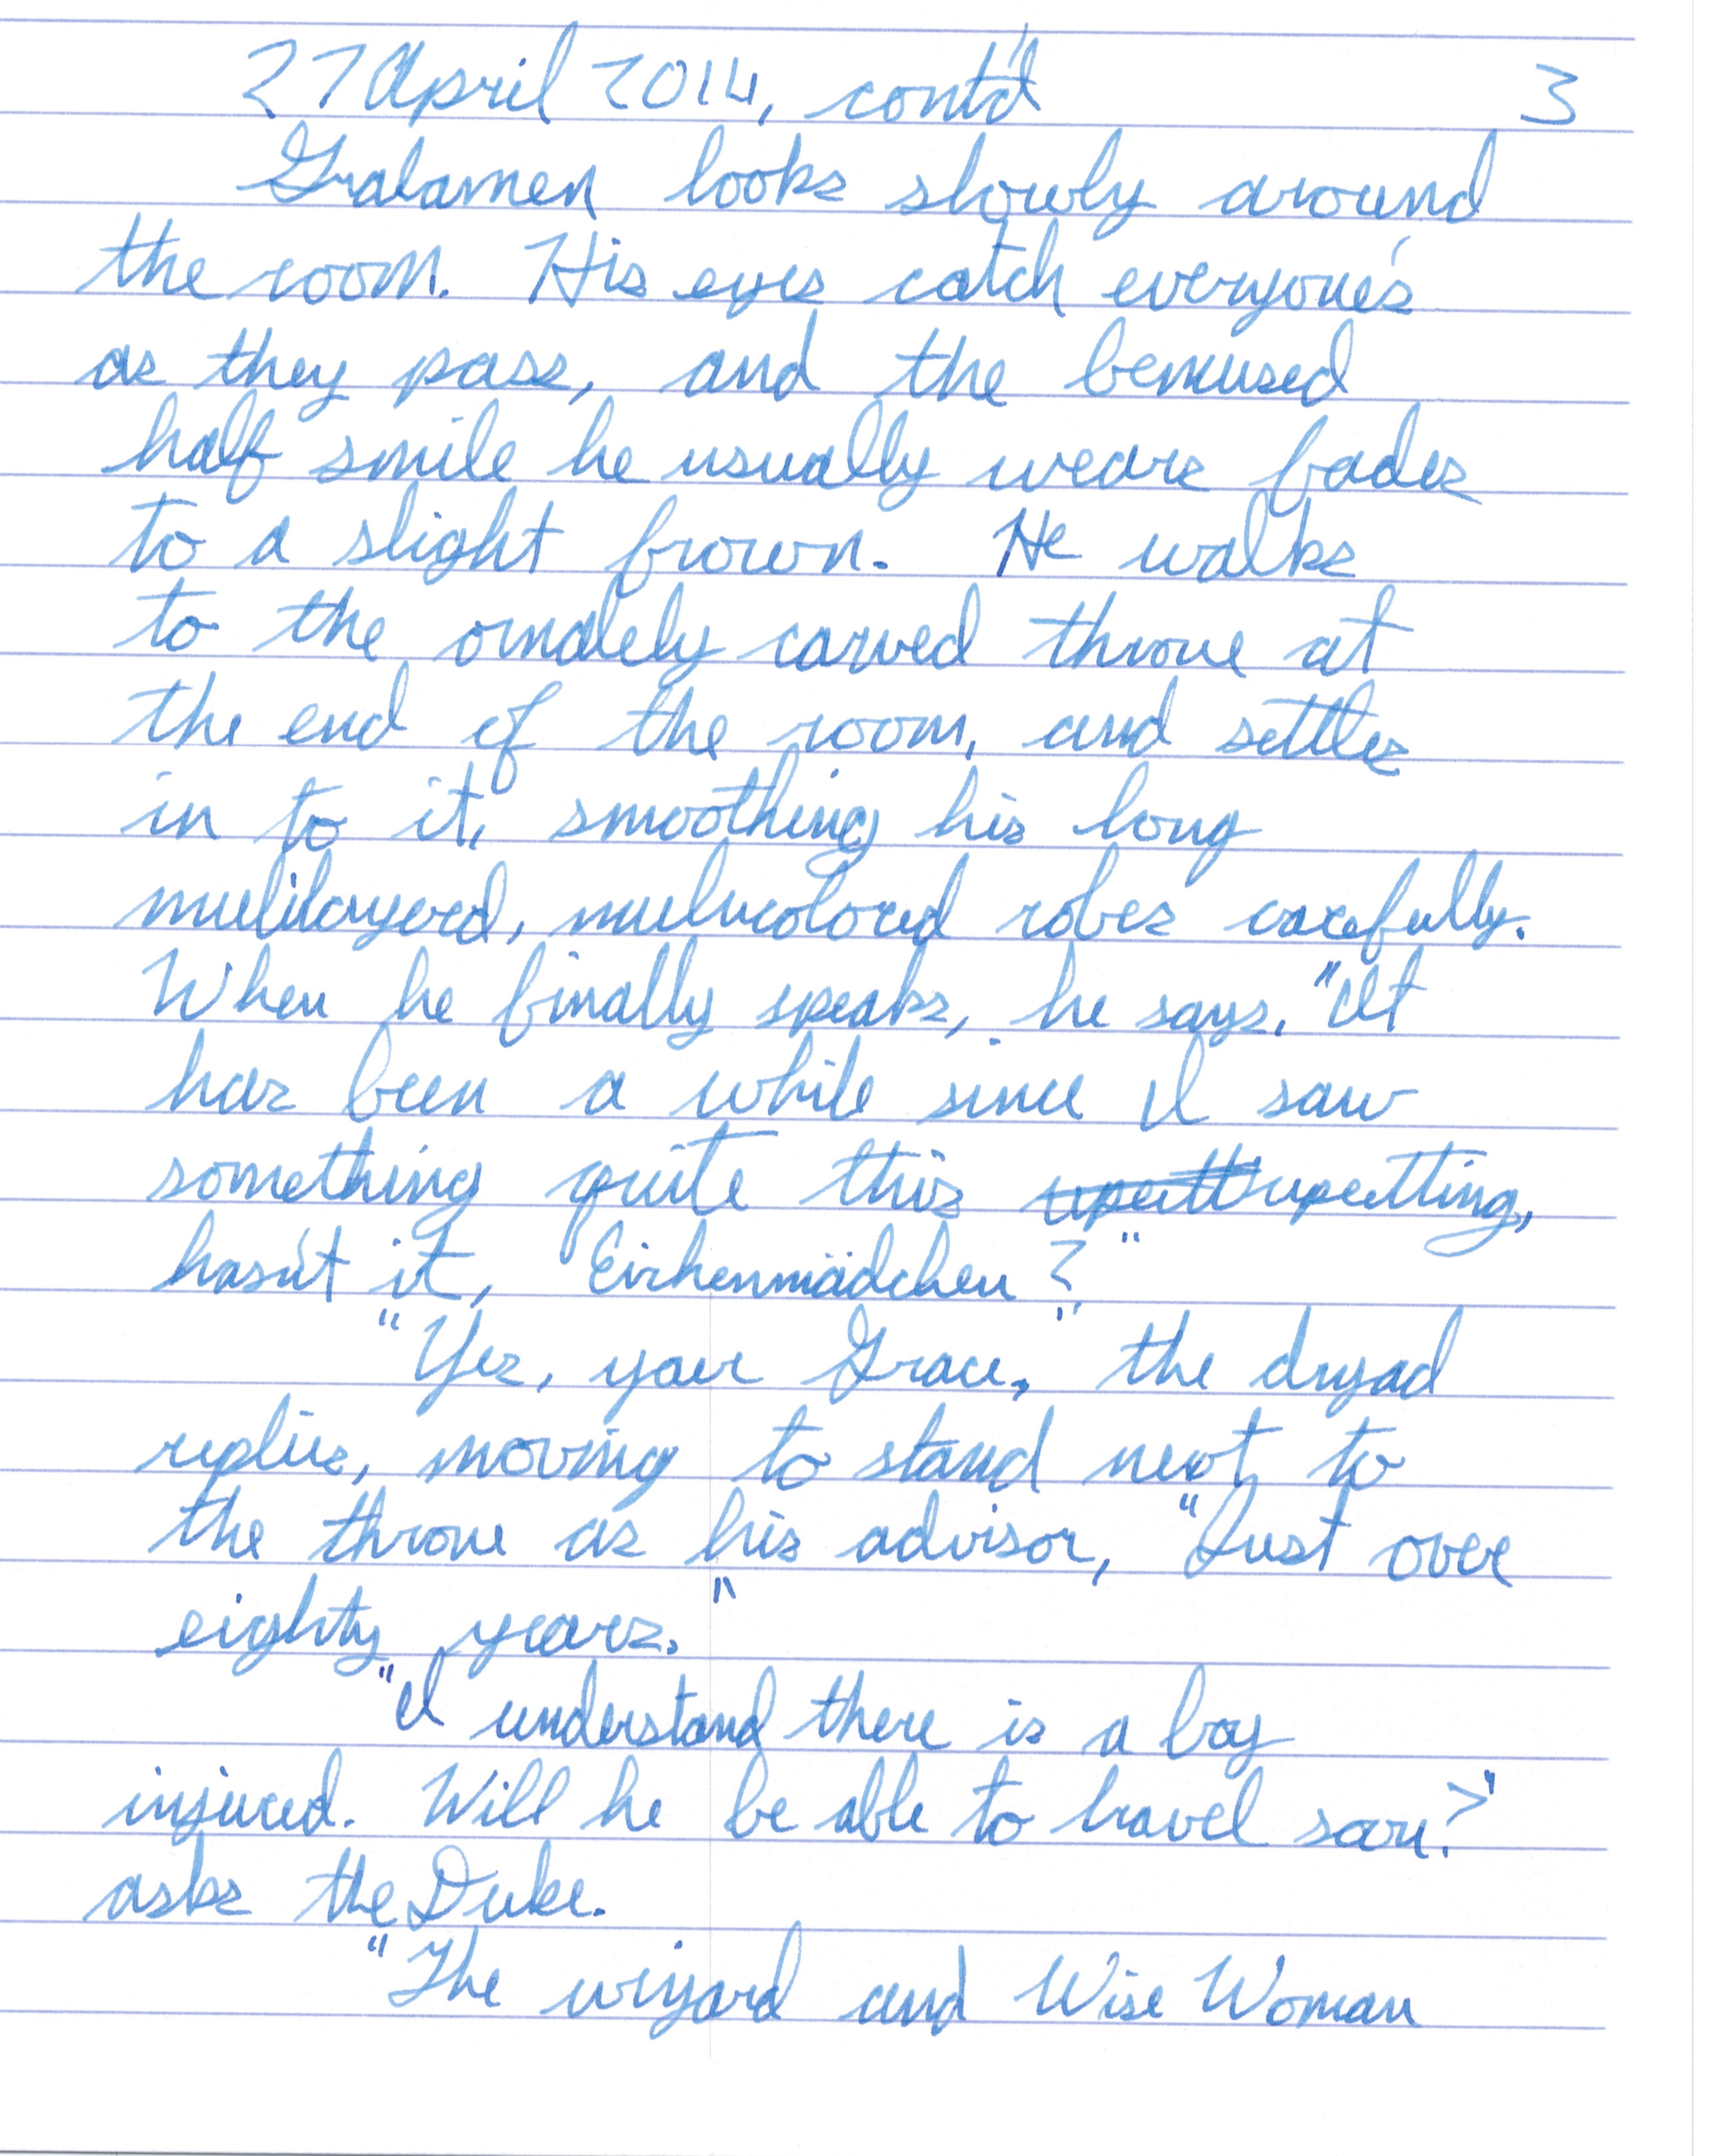 27 April 2014, cont'd 3
Gralamen looks slowly around
the room. His eyes catch everyone's
as they pass, and the bemused
half smile he usually wears fades
to a slight frown. He walks
to the ornately carved throne at
the end of the room, and settles
in to it, smoothing his long
multilayered, multicolored robes carefully.
When he finally speaks, he says, "It
has been a while since I saw
something quite this upsetting,
hasn't it, Eichenmädchen?"
"Yes, your Grace," the dryad
replies, moving to stand next to
the throne as his advisor, "Just over
eighty years."
"I understand there is a boy
injured. Will he be able to travel soon?"
asks the Duke.
"The wizard and Wise Woman